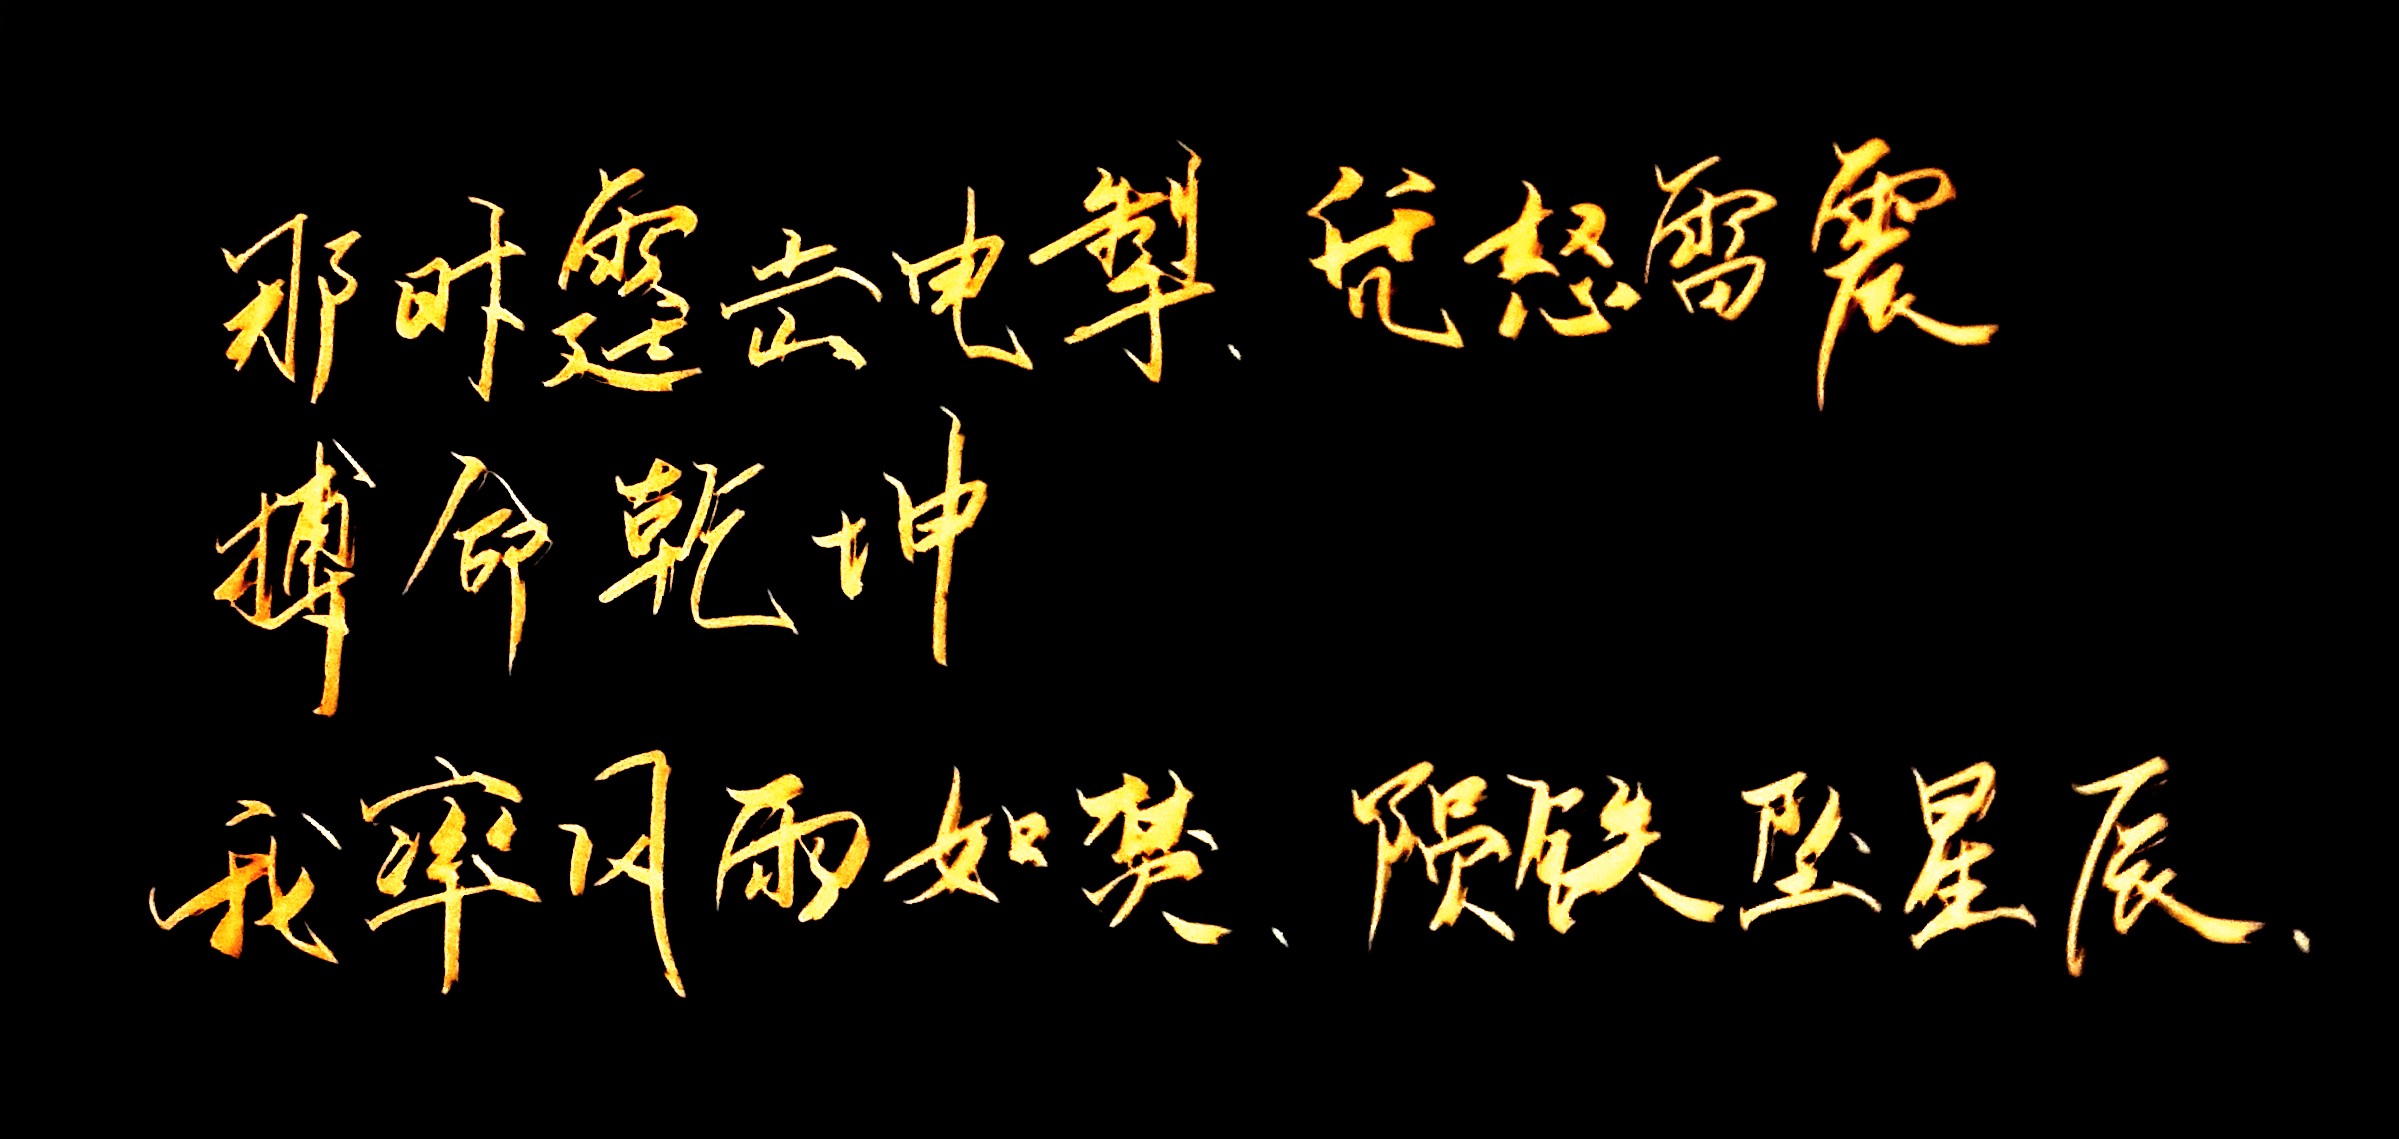 那时霆击电掣、凭怒雷震
搏命乾坤
我率风雨如焚、陨铁坠星辰、